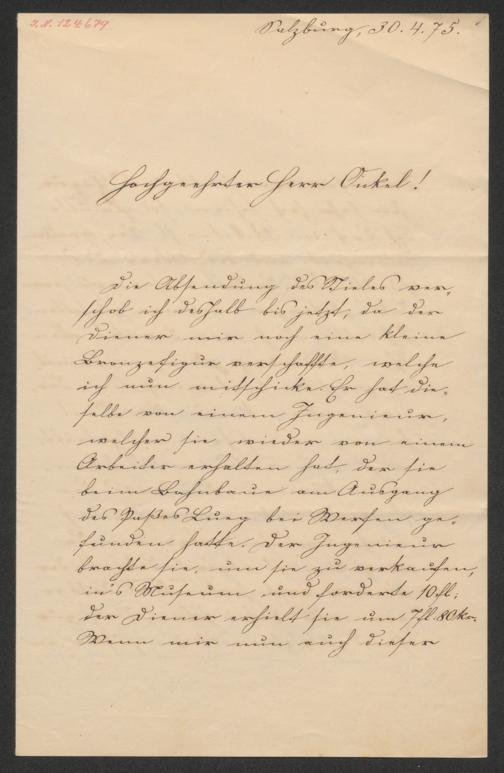 I.N. 124.679
Salzburg, 30.4.75.
Hochgeehrter Herr Onkel!
Die Absendung des Stieles ver-
schob ich deshalb bis jetzt, da der
Diener mir noch eine kleine
Bronzefigur verschaffte, welche
ich nun mitschicke. Er hat die-
selbe von einem Ingenieur,
welcher sie wieder von einem
Arbeiter erhalten hat, der sie
beim Bahnbaue am Ausgang
des Paßes Lueg bei Werfen ge-
funden hatte. Der Ingenieur
brachte sie, um sie zu verkaufen,
in's Museum und forderte 10 fl;
der Diener erhielt sie um 7 fl. 80 kr.
Wenn mir nun auch dieser